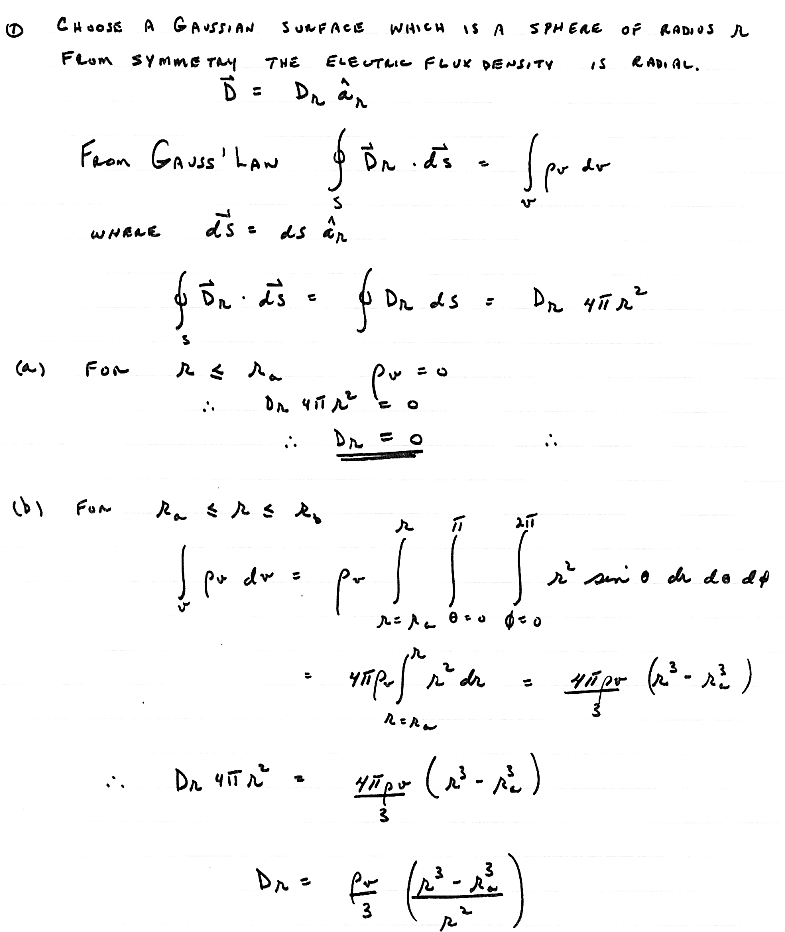 ① CHOOSE A GAUSSIAN SURFACE WHICH IS A SPHERE OF RADIUS r
FROM SYMMETRY THE ELECTRIC FLUX DENSITY IS RADIAL.
D⃗ = Dr âr
FROM GAUSS' LAW ∮s D⃗r · ds⃗ = ∫v ρv dv
WHERE ds⃗ = ds âr
∮s D⃗r · ds⃗ = ∮ Dr ds = Dr 4πr²
(a) FOR r ≤ ra ρv = 0
∴ Dr 4πr² = 0
∴ Dr = 0 ∴
(b) FOR ra ≤ r ≤ rb
∫v ρv dv = ρv ∫_{r=ra}^{r} ∫_{θ=0}^{π} ∫_{ϕ=0}^{2π} r² sin θ dr dθ dϕ
= 4πρv ∫_{r=ra}^{r} r² dr = 4πρv/3 (r³ - ra³)
∴ Dr 4πr² = 4πρv/3 (r³ - ra³)
Dr = ρv/3 ((r³ - ra³)/r²)